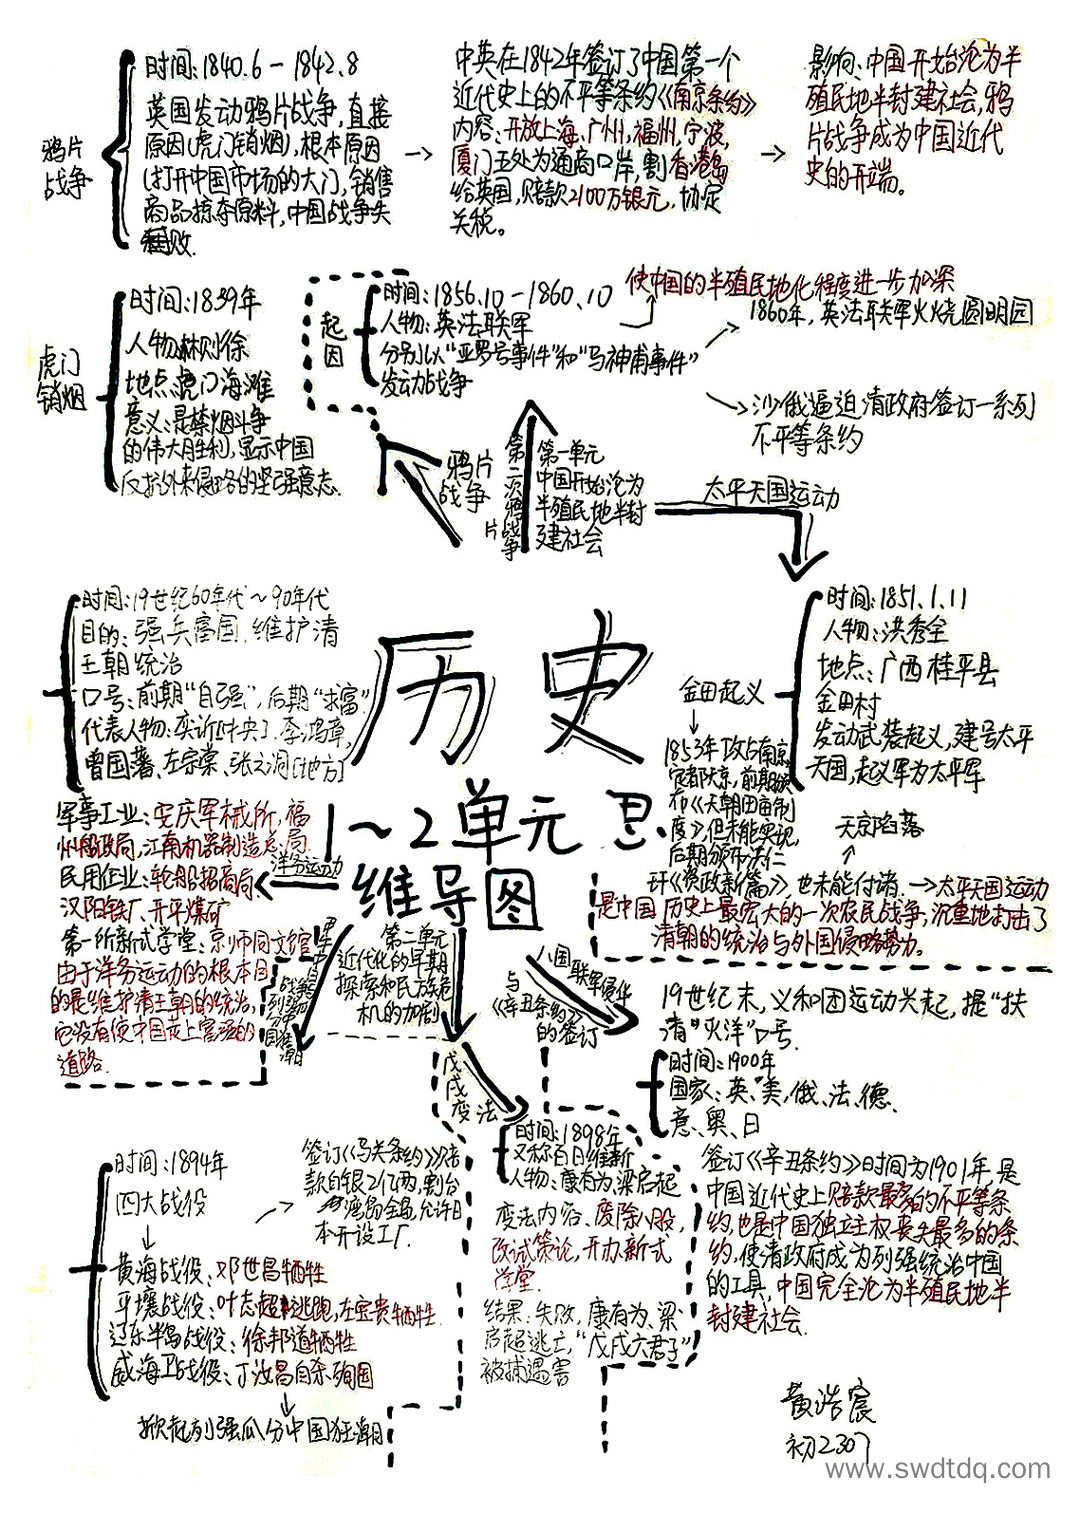 鸦片
战争
时间:1840.6-1842.8
英国发动鸦片战争,直接
原因(虎门销烟),根本原因
(打开中国市场的大门,销售
商品掠夺原料,中国战争失
败.
→
中英在1842年签订了中国第一个
近代史上的不平等条约《南京条约》
内容:开放上海、广州,福州,宁波,
厦门五处为通商口岸,割香港岛
给英国,赔款2100万银元,协定
关税。
→
影响:中国开始沦为半
殖民地半封建社会,鸦
片战争成为中国近代
史的开端。
虎门
销烟
时间:1839年
人物:林则徐
地点:虎门海滩
意义:是禁烟斗争
的伟大胜利,显示中国
反抗外来侵略的坚强意志.
起
因
时间:1856.10-1860.10
人物:英法联军
分别以"亚罗号事件"和"马神甫事件"
发动战争
使中国的半殖民地化程度进一步加深
1860年,英法联军火烧圆明园
沙俄逼迫清政府签订一系列
不平等条约
鸦片
战争
第二次鸦片战争
第一单元
中国开始沦为
半殖民地半封
建社会
太平天国运动
时间:1851.1.11
人物:洪秀全
地点:广西桂平县
金田村
发动武装起义,建号太平
天国,起义军为太平军
金田起义
1853年攻占南京,
定都天京,前期颁
布《天朝田亩制
度》,但未能实现,
后期颁布洪仁
玕《资政新篇》也未能付诸.→太平天国运动
是中国历史上最宏大的一次农民战争,沉重地打击了
清朝的统治与外国侵略势力.
天京陷落
历史
1~2单元思
维导图
时间:19世纪60年代~90年代
目的:强兵富国.维护清
王朝统治
口号:前期"自强",后期"求富"
代表人物:奕䜣[中央].李鸿章,
曾国藩、左宗棠、张之洞[地方]
军事工业:安庆军械所,福
州船政局,江南机器制造总局.
民用企业:轮船招商局
汉阳铁厂、开平煤矿
第一所新式学堂:京师同文馆
由于洋务运动的根本目
的是维护清王朝的统治,
它没有使中国走上富强的
道路.
洋务运动
甲午中日战争与列强瓜分中国狂潮
第二单元
近代化的早期
探索和民族危
机的加剧
八国联军侵华
与《辛丑条约》
的签订
戊戌变法
19世纪末,义和团运动兴起,提"扶
清"灭洋"口号.
时间:1900年
国家:英、美,俄、法、德、
意、奥、日
签订《辛丑条约》时间为1901年是
中国近代史上赔款最多的不平等条
约,也是中国独立主权丧失最多的条
约.使清政府成为列强统治中国
的工具,中国完全沦为半殖民地半
封建社会.
时间:1898年
又称百日维新
人物:康有为、梁启起
变法内容、废除八股,
改试策论,开办新式
学堂.
结果:失败,康有为、梁
启起逃亡,"戊戌六君子"
被捕遇害
时间:1894年
四大战役
黄海战役:邓世昌牺牲
平壤战役:叶志超逃跑,左宝贵牺牲
辽东半岛战役:徐邦道牺牲
威海卫战役:丁汝昌自杀殉国
掀起列强瓜分中国狂潮
签订《马关条约》赔
款白银2亿两,割台
湾岛全岛,允许日
本开设工厂.
黄浩宸
初2307
www.swdtdq.com